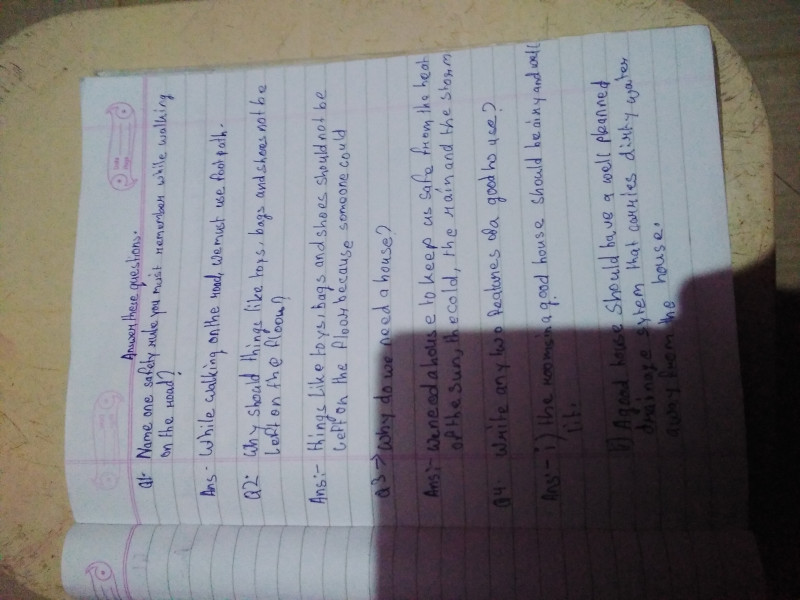 Answer these questions.
Q1. Name one safety rule you must remember while walking
on the road?
Ans - While walking on the road, we must use foot path.
Q2. Why should things like toys, bags and shoes not be
left on the floor?
Ans:- things like toys, bags and shoes should not be
left on the floor because someone could
Q3 → Why do we need a house?
Ans:- We need a house to keep us safe from the heat
of the sun, the cold, the rain and the storm
Q4. Write any two features of a good house?
Ans - i) the rooms in a good house should be airy and well
lit.
ii) A good house should have a well planned
drainage sytem that carries dirty water
away from the house.